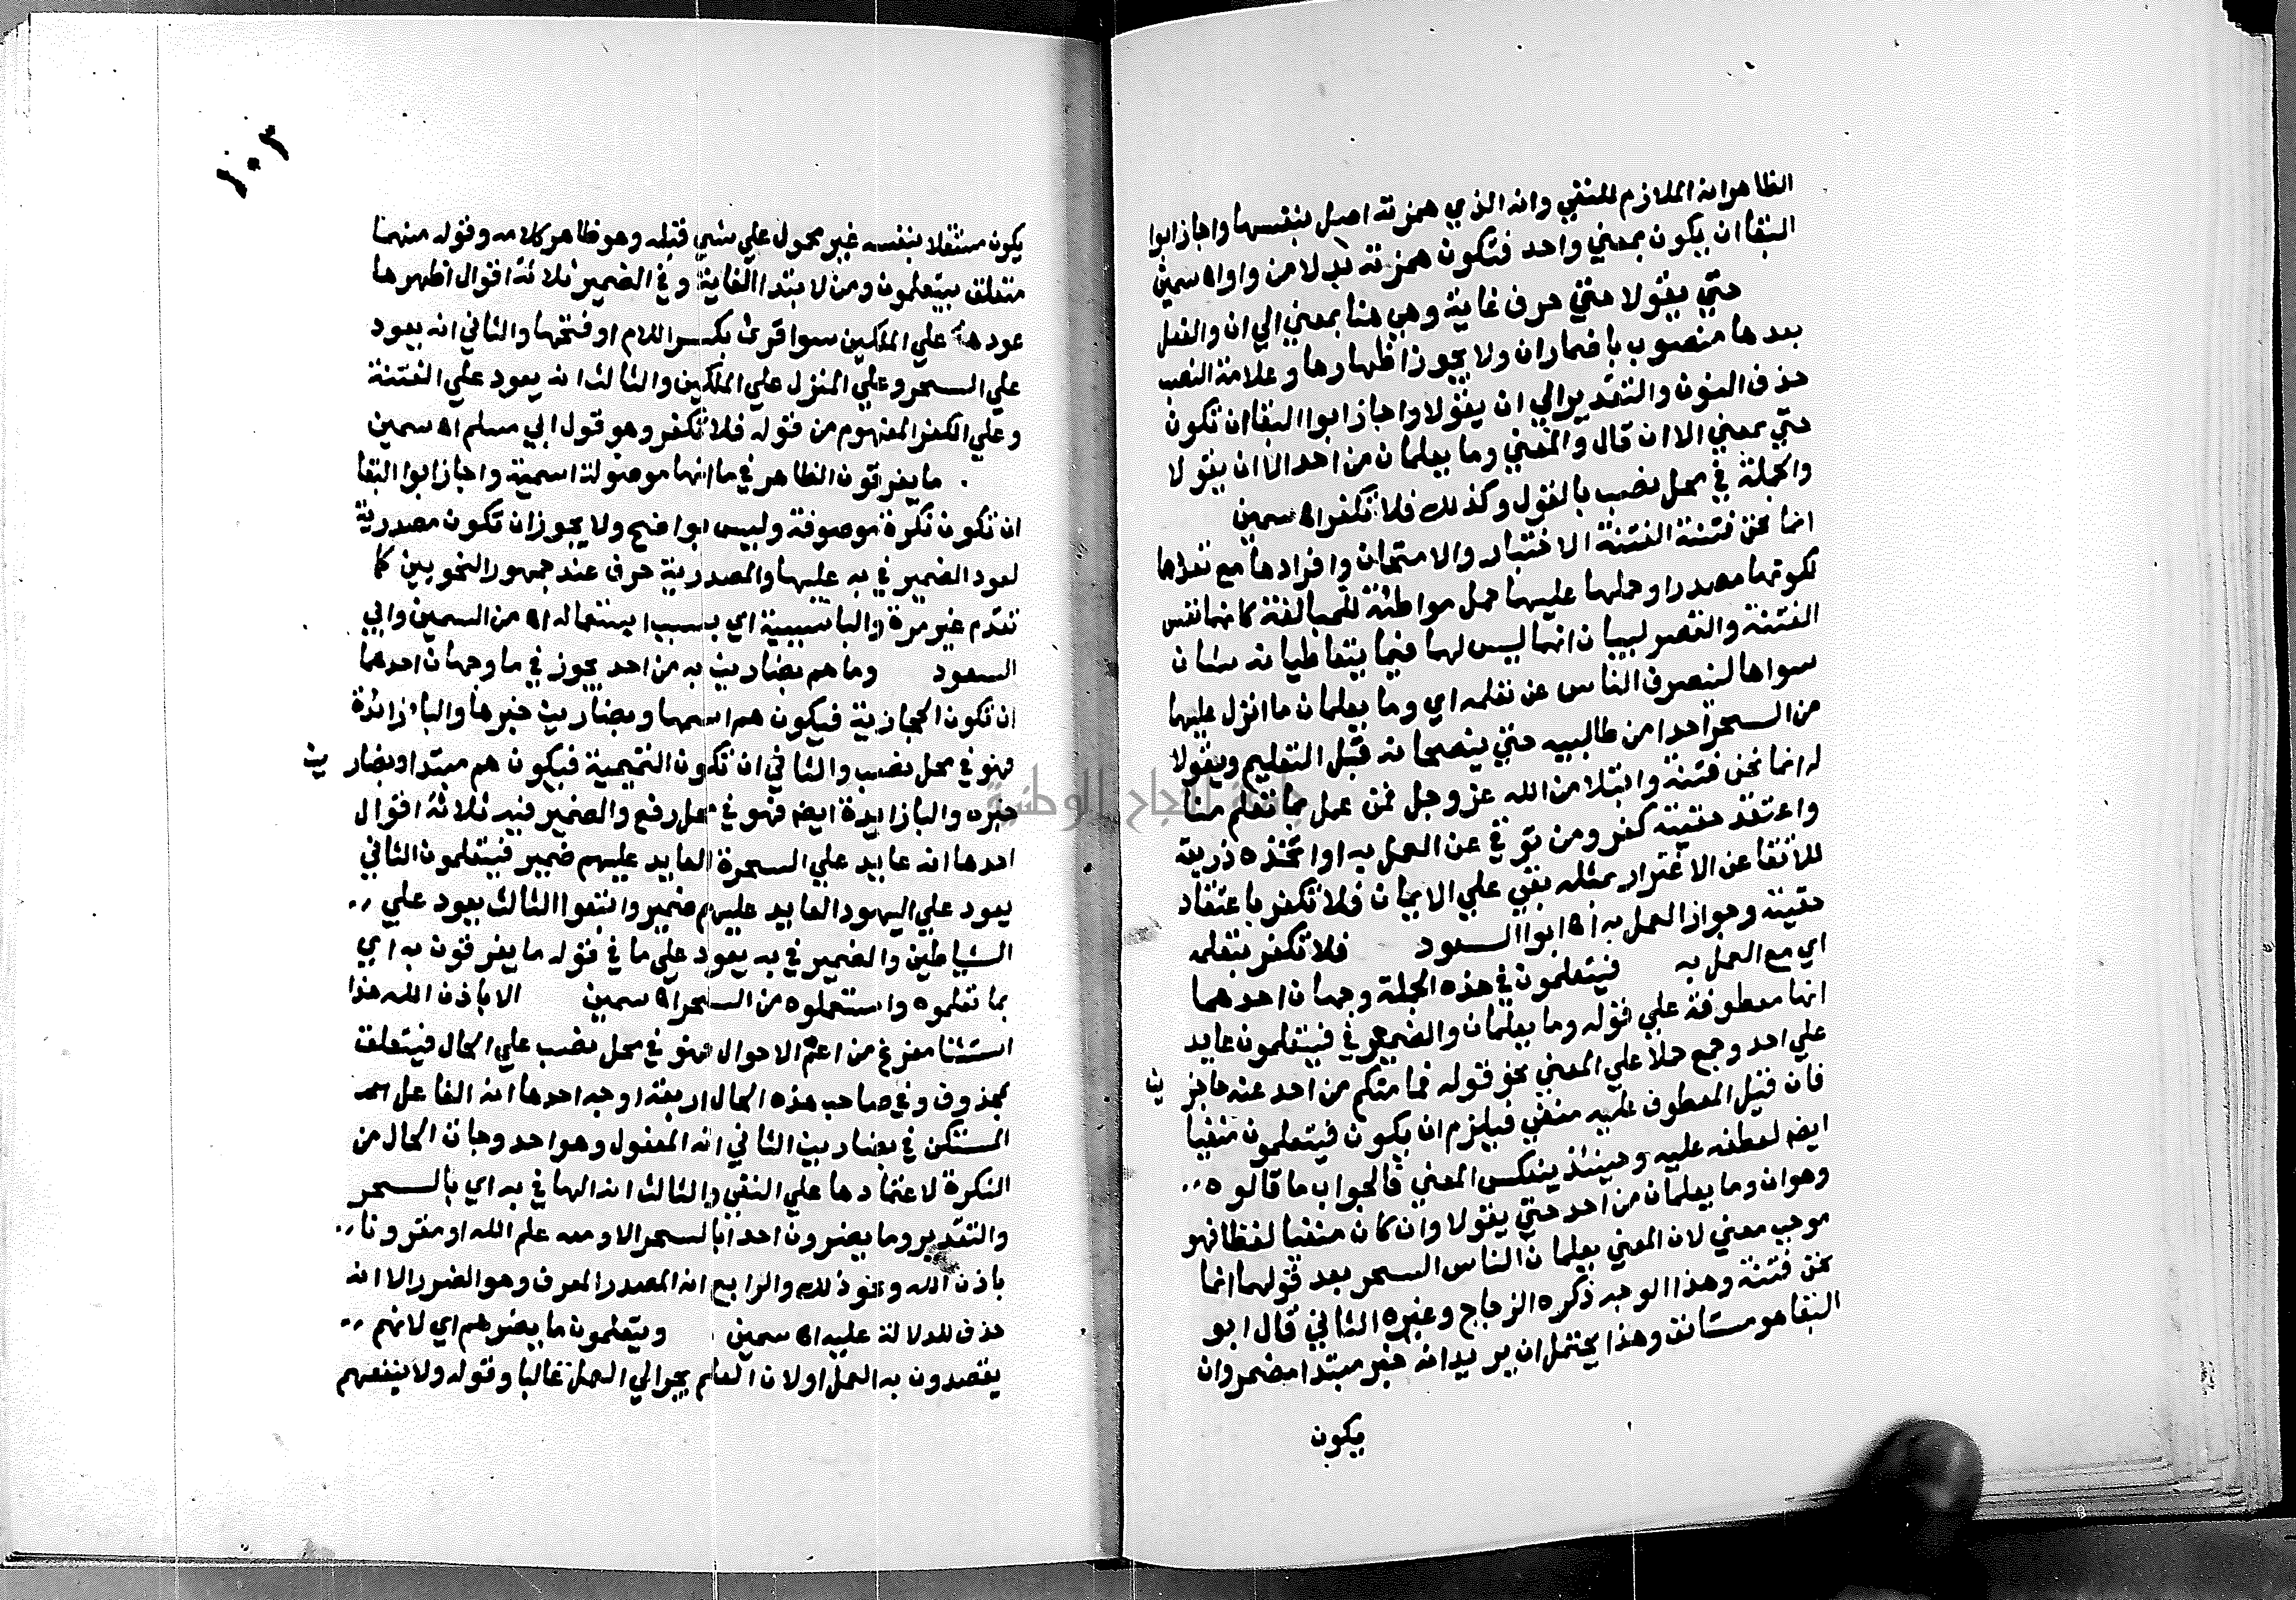 الظاهر انه الملازم للنفي وانه الذي همزته اصل بنفسها واجاز ابوا
البقا ان يكون بمعني واحد فتكون همزته بدلا من واو اه سمين
حتي يقولا حتي حرف غاية وهي هنا بمعني الي ان والفعل
بعدها منصوب باضمار ان ولا يجوز اظهارها وعلامة النصب
حذف النون والتقدير الي ان يقولا واجاز ابوا البقا ان تكون
حتي بمعني الا ان قال والمعني وما يعلمان من احد الا ان يقولا
والجملة في محل نصب بالقول وكذلك فلا تكفر اه سمين
انما نحن فتنة الفتنة الاختبار والامتحان وافرادها مع تعددها
لكونها مصدرا وحملها عليهما حمل مواطئة للمبالغة كانهما نفس
الفتنة والقصر لبيان انهما ليس لهما فيما يتعاطيانه شان
سواها لينصرف الناس عن تعلمه اي وما يعلمان ما انزل عليهما
من السحر احدا من طالبيه حتي ينصحانه قبل التعليم ويقولا
له انما نحن فتنة وابتلا من الله عز وجل فمن عمل بما تعلم منا
واعتقد حقيته كفر ومن توقي عن العمل به او اتخذه ذريعة
للاتقا عن الاغترار بمثله بقي علي الايمان فلا تكفر باعتقاد
حقيته وجواز العمل به اه ابوا السعود فلا تكفر بتعلمه
اي مع العمل به فيتعلمون في هذه الجملة وجهان احدهما
انها معطوفة علي قوله وما يعلمان والضمير في فيتعلمون عايد
علي احد وجمع حملا علي المعني نحو قوله فما منكم من احد عنه حاجز
ين
فان قيل المعطوف عليه منفي فيلزم ان يكون فيتعلمون منفيا
ايضه لعطفه عليه وحينئذ ينعكس المعني فالجواب ما قالوه
وهو ان وما يعلمان من احد حتي يقولا وان كان منفيا لفظا فهو
موجب معني لان المعني يعلمان الناس السحر بعد قولهما انما
نحن فتنة وهذا الوجه ذكره الزجاج وغيره الثاني قال ابو
البقا هو مستانف وهذا يحتمل ان يريد انه خبر مبتدا مضمر وان
يكون
١٠٣
يكون مستقلا بنفسه غير محمول علي شي قبله وهو ظاهر كلامه وقوله منهما
متعلق بيتعلمون ومن لابتدا الغاية وفي الضمير ثلاثة اقوال اظهرها
عودها علي الملكين سوا قرئ بكسر اللام او فتحها والثاني انه يعود
علي السحر وعلي المنزل علي الملكين والثالث انه يعود علي الفتنة
وعلي الكفر المفهوم من قوله فلا تكفر وهو قول ابي مسلم اه سمين
ما يفرقون الظاهر في ما انها موصولة اسمية واجاز ابوا البقا
ان تكون نكرة موصوفة وليس بواضح ولا يجوز ان تكون مصدرية
لعود الضمير في به عليها والمصدرية حرف عند جمهور النحويين كما
تقدم غير مرة والبا سببية اي بسبب استعماله اه من السمين وابي
السعود وما هم بضارين به من احد يجوز في ما وجهان احدهما
ان تكون الحجازية فيكون هم اسمها وبضارين خبرها والبا زائدة
فهو في محل نصب والثاني ان تكون التميمية فيكون هم مبتدا وبضار
ين
خبره والبا زايدة ايضه فهو في محل رفع والضمير فيه ثلاثة اقوال
احدها انه عايد علي السحرة العايد عليهم ضمير فيتعلمون الثاني
يعود علي اليهود العايد عليهم ضمير واتبعوا الثالث يعود علي
الشياطين والضمير في به يعود علي ما في قوله ما يفرقون به اي
بما تعلموه واستعملوه من السحر اه سمين الا باذن الله هذا
استثنا مفرغ من اعم الاحوال فهو في محل نصب علي الحال فيتعلق
بمحذوف وفي صاحب هذه الحال اربعة اوجه احدها انه الفاعل
المستكن في بضارين الثاني انه المفعول وهو احد وجات الحال من
النكرة لاعتمادها علي النفي والثالث انه الها في به اي بالسحر
والتقدير وما يضرون احدا بالسحر الا ومعه علم الله او مقرونا
باذن الله ونحو ذلك والرابع انه المصدر المعرف وهو الضرر الا انه
حذف للدلالة عليه اه سمين ويتعلمون ما يضرهم اي لانهم
يقصدون به العمل او لان العلم يجر الي العمل غالبا وقوله ولا ينفعهم
جامعة النجاح الوطنية